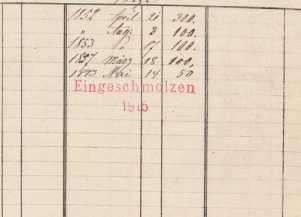 1852 April 21 200.
" Aug. 3 100.
1853 " 17 100.
1857 März 18 100,
1873 Mai 14 50
Eingeschmolzen
1915